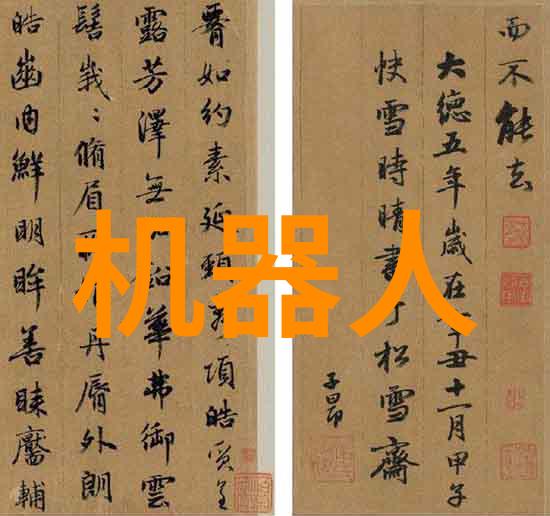 如約素延頸項皓質呈
露芳澤無鉛華弗御雲
髻峩〻脩眉丹脣外朗
皓齒内鮮明眸善睞靨輔
而不能去
大德五年歲在辛丑十一月甲子
快雪時晴書于松雪齋
子昂
机器人